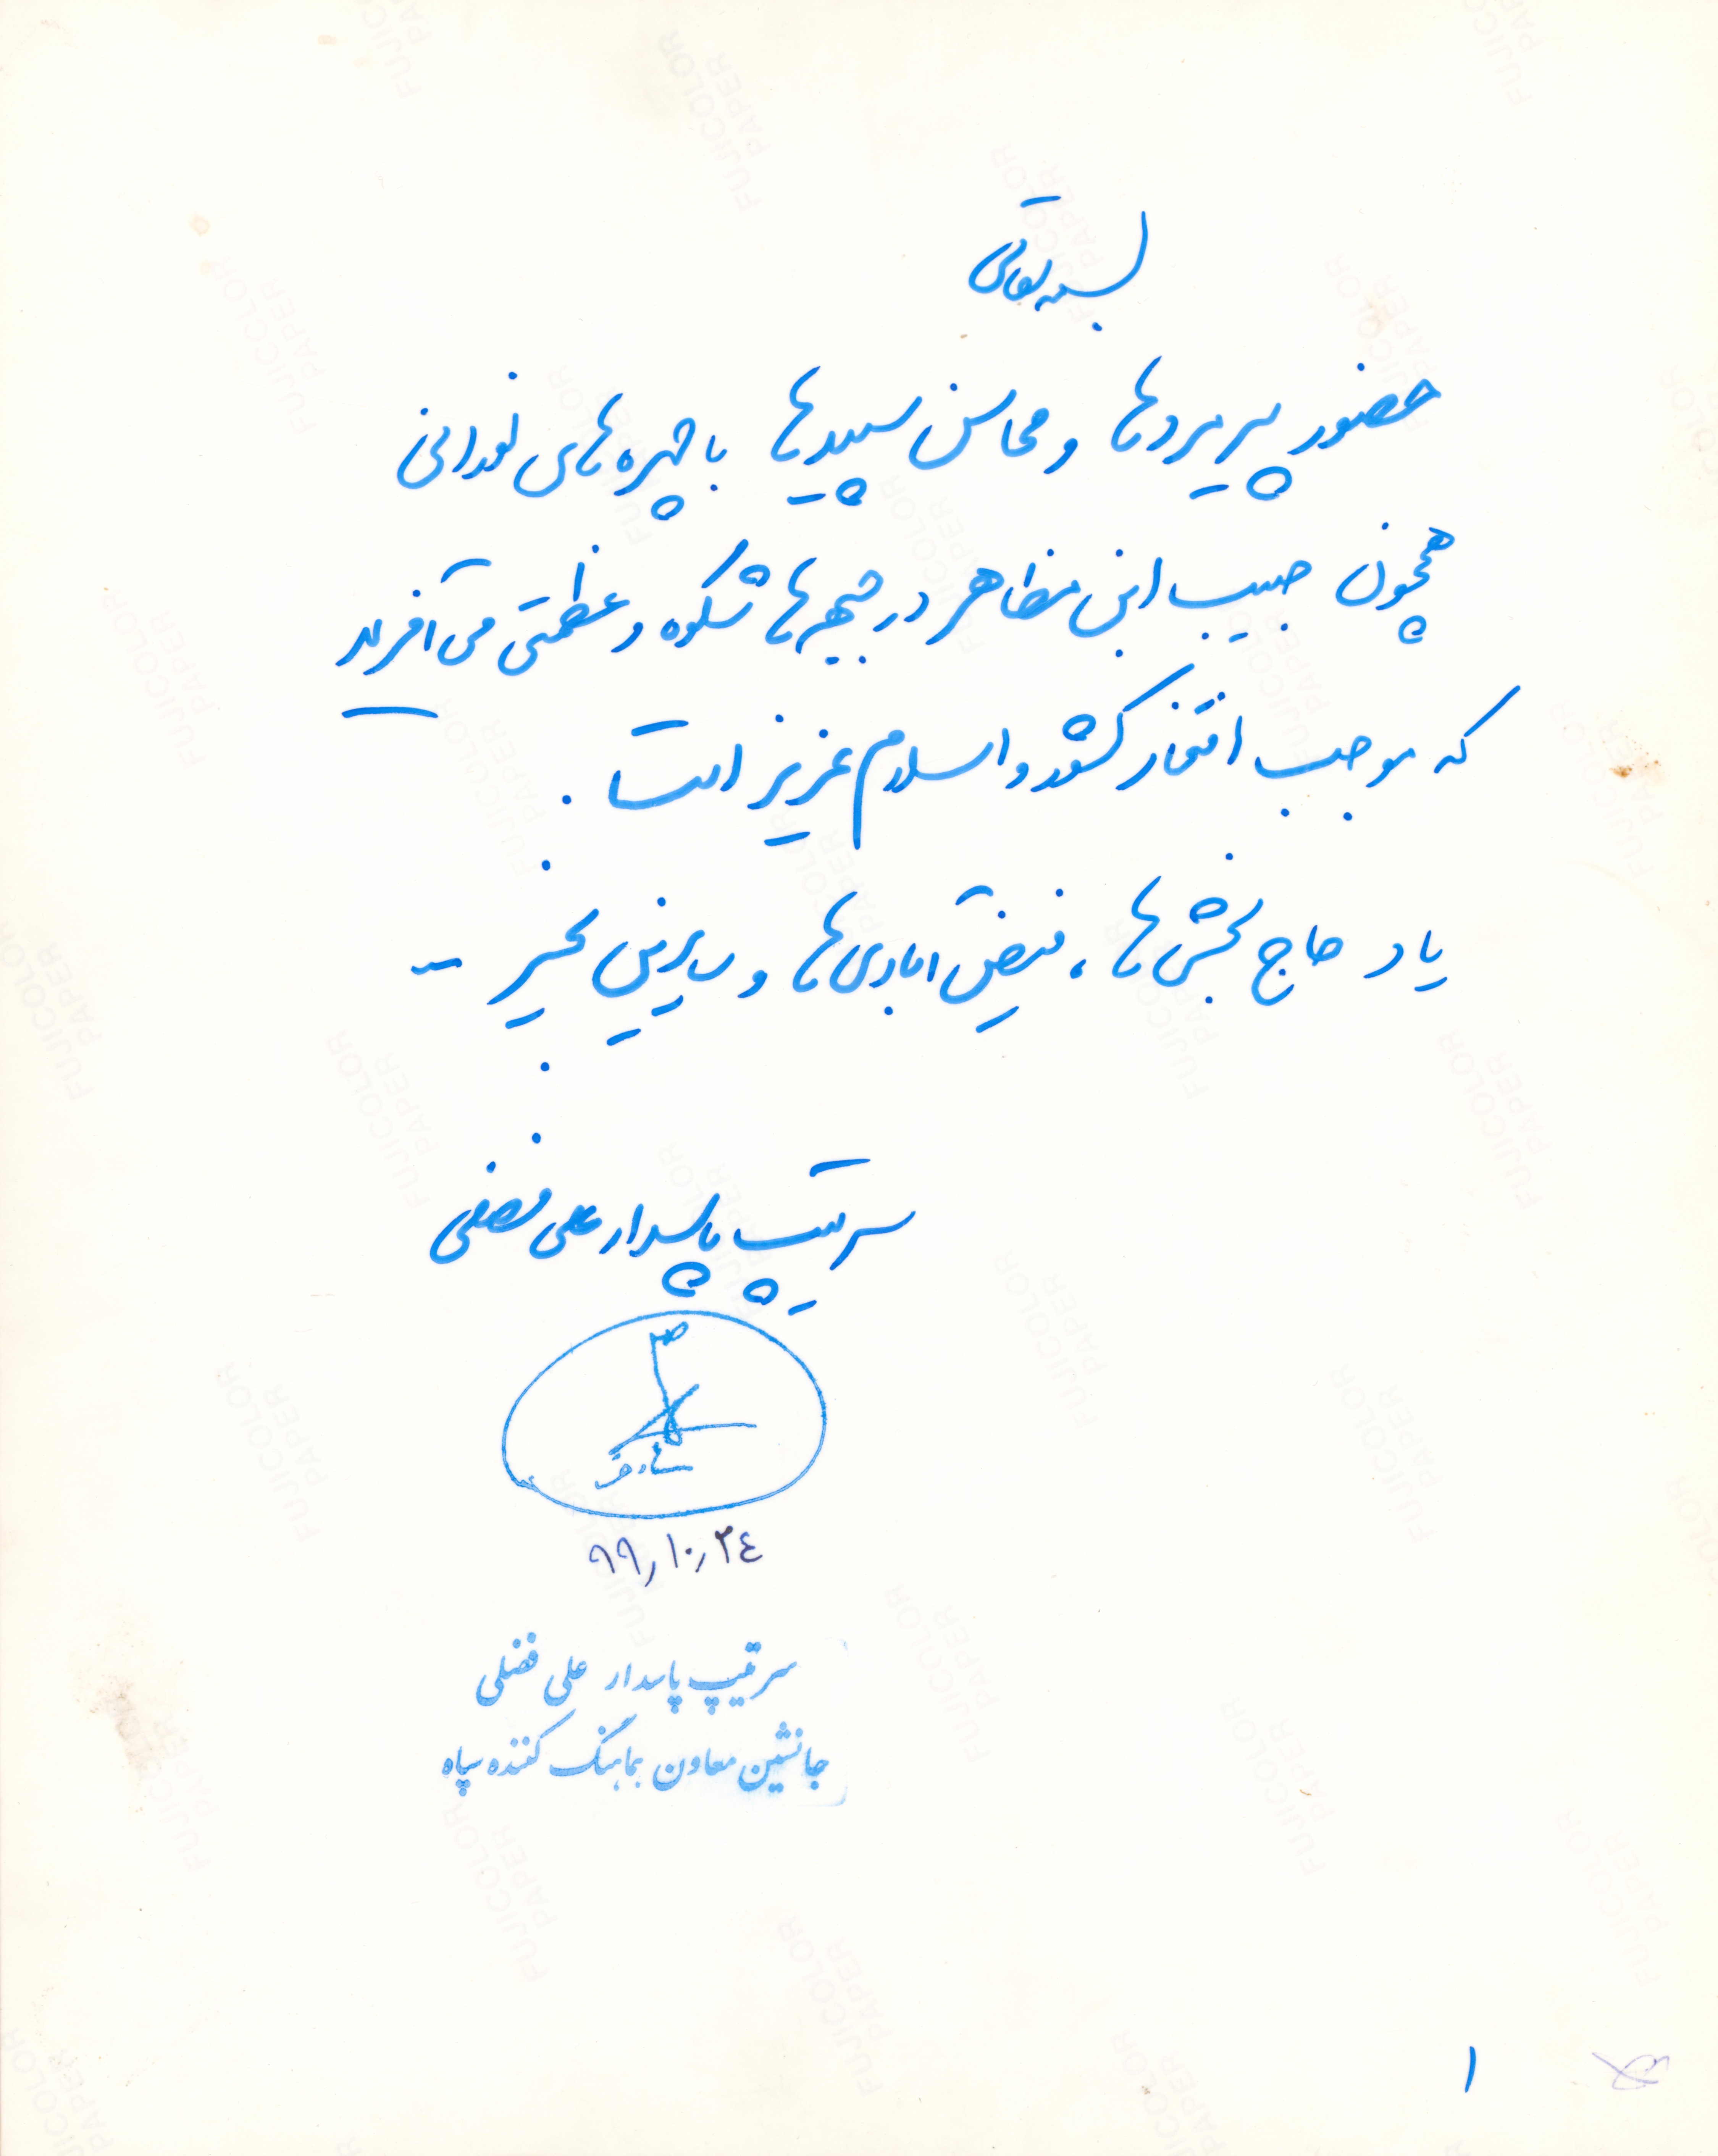 بسمه تعالی
حضور پیرمردها و محاسن سپیدها با چهره‌های نورانی
همچون حبیب ابن مظاهر در جبهه‌ها شکوه و عظمتی می‌آفریند
که موجب افتخار کشور و اسلام عزیز است.
یاد حاج بخشی‌ها، فیض آبادی‌ها و سایرین بخیر
سرتیپ پاسدار علی فضلی
۹۹/۱۰/۲۴
سرتیپ پاسدار علی فضلی
جانشین معاون هماهنگ کننده سپاه
۱
FUJICOLOR
PAPER